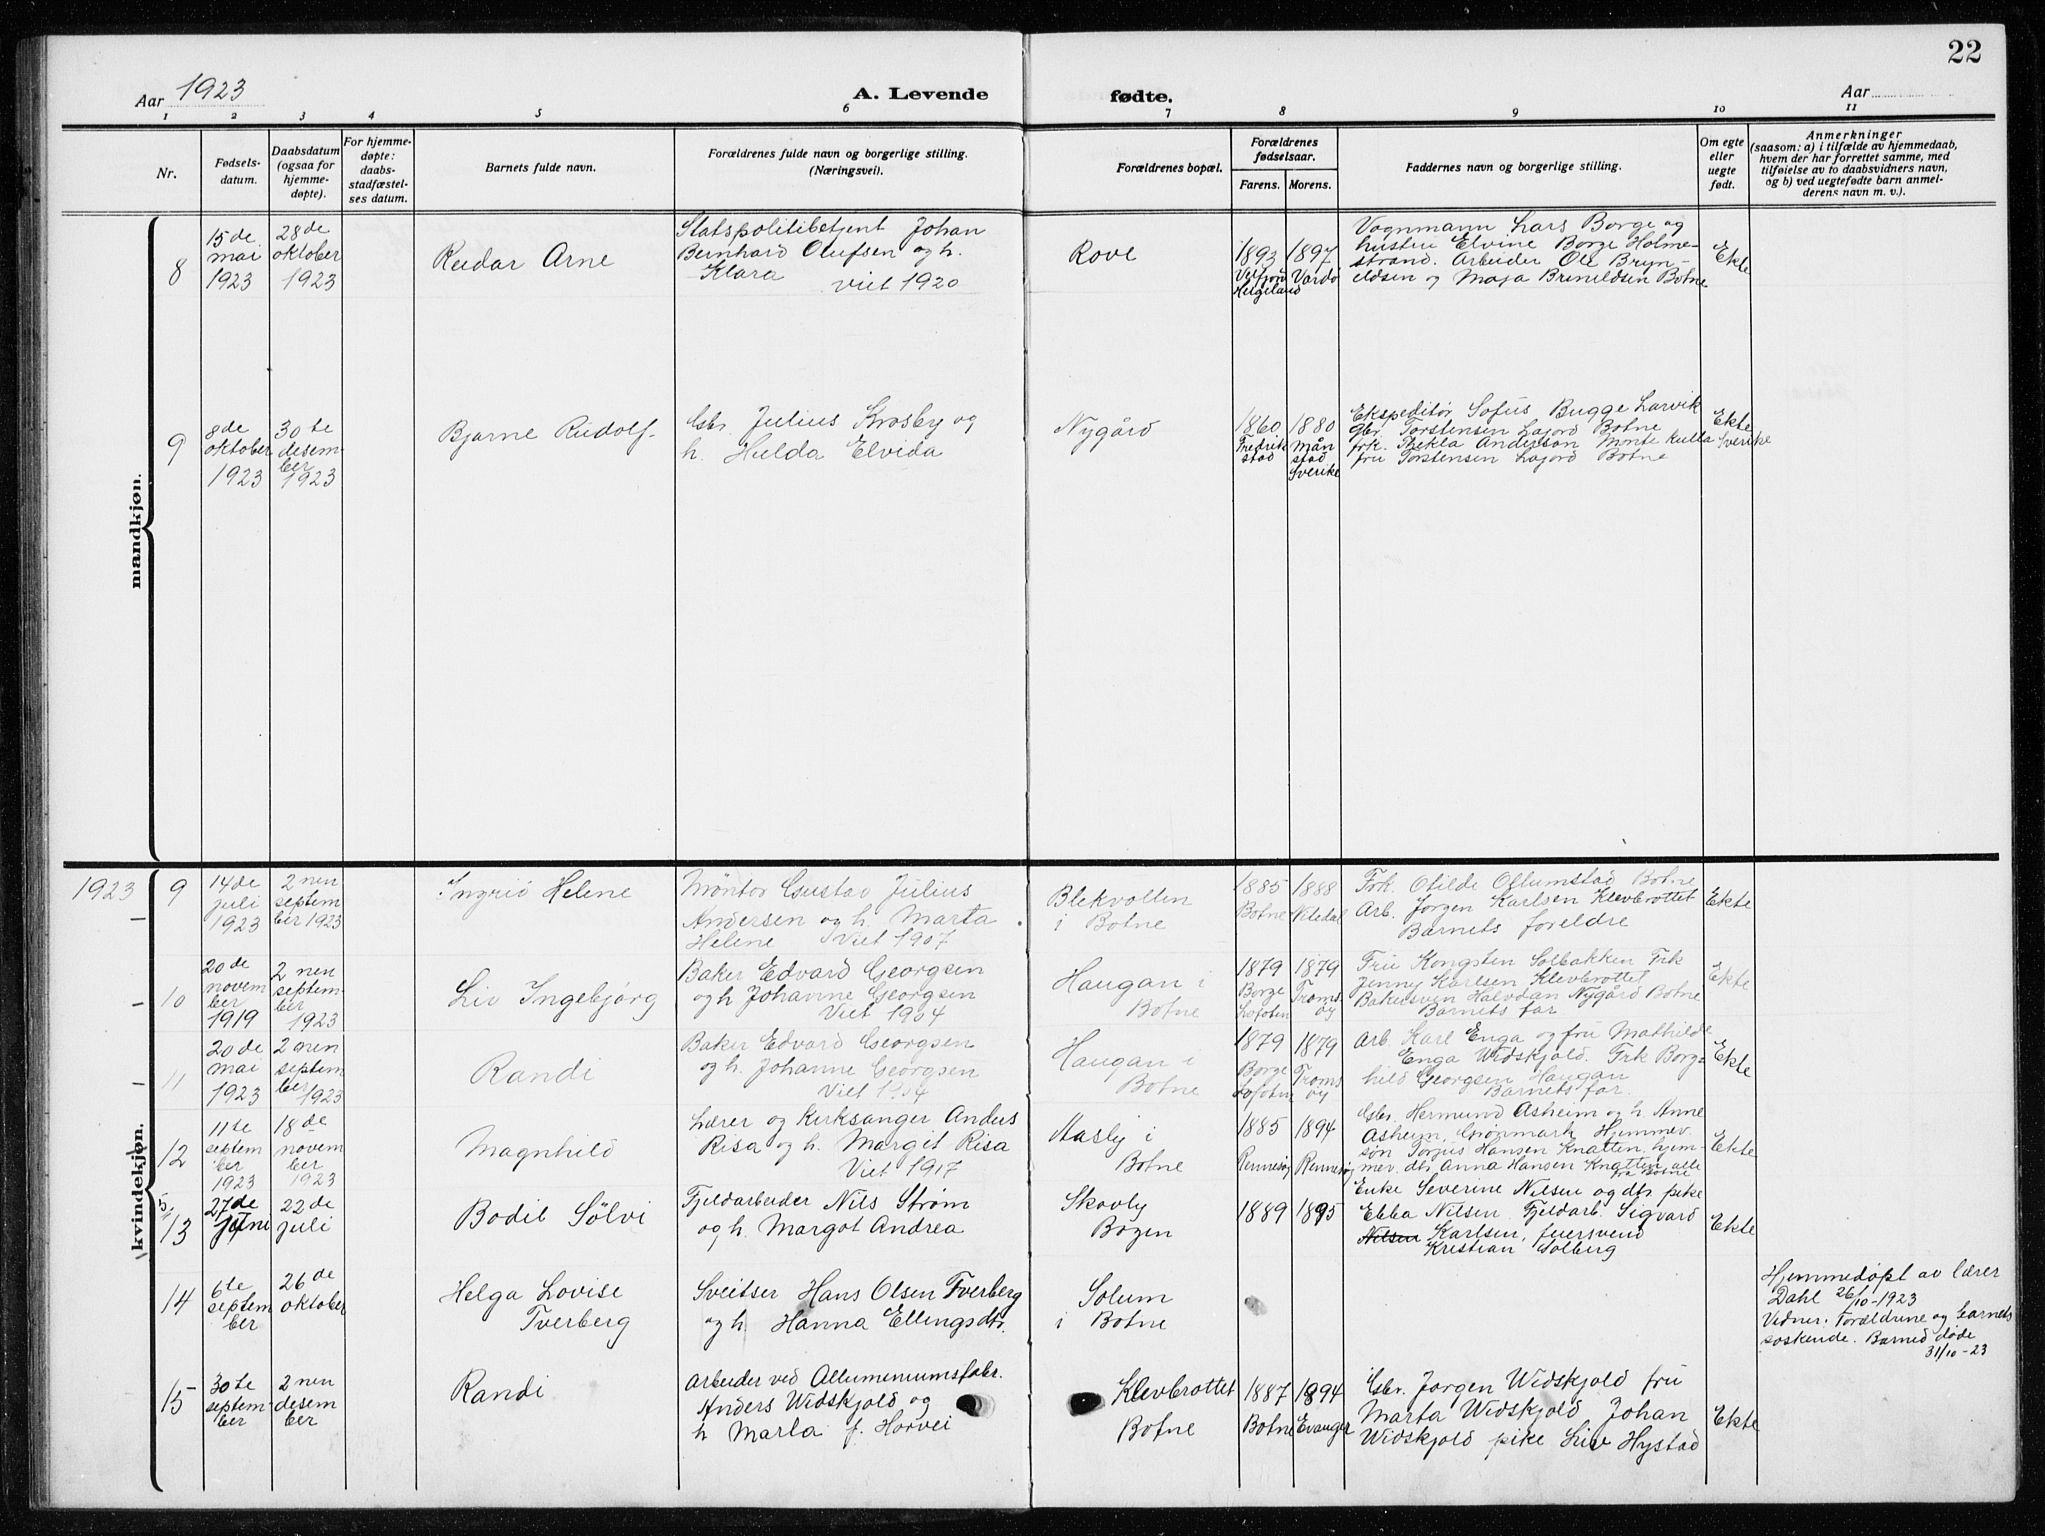 22
Aar 1923
A. Levende
fødte.
Aar
1 2 3 4 5 6 7 8 9 10 11
Nr.
Fødsels-
datum.
Daabsdatum
(ogsaa for
hjemme-
døpte).
For hjemme-
døpte:
daabs-
stadfæstel-
ses datum.
Barnets fulde navn.
Forældrenes fulde navn og borgerlige stilling.
(Næringsvei).
Forældrenes bopæl.
Forældrenes
fødselsaar.
Farens. Morens.
Faddernes navn og borgerlige stilling.
Om egte
eller
uegte
født.
Anmerkninger
(saasom: a) i tilfælde av hjemmedaab,
hvem der har forrettet samme, med
tilføielse av to daabsvidners navn,
og b) ved uegtefødte barn anmel-
derens navn m. v.).
mandkjøn.
8
15de
mai
1923
28de
oktober
1923
Reidar Arne
Statspolitibetjent Johan
Bernhard Olufsen og h.
Klara
Viet 1920
Rove
1893
Velfjord
Helgeland
1897
Vardø
Vognmann Lars Borge og
hustru Elvine Borge Holme-
strand. Arbeider Ole Bryn-
ildsen og Maja Brinildsen Botne
Ekte
9
8de
oktober
1923
30te
desem-
ber
1923
Bjarne Rudolf
Gbr. Julius Krosby og
h. Hulda Elvida
Nygård
1860
Fredrik
stad
1880
Mån
stad
Sverike
Ekspeditør Sofus Bugge Larvik
gbr. Torstensen Lajord Botne
frk. Thekla Anderson Sverike
fru Torstensen Lajord Botne
Ekte
kvindekjøn.
1923
9
14de
juli
1923
2nen
septem
ber 1923
Ingrid Helene
Montør Gustav Julius
Andersen og h. Marta
Helene Viet 1907
Blekvollen
i Botne
1885
Botne
1888
Nitedal
Frk. Otilde Ollumstad Botne
Arb. Jørgen Karlsen Klevbrottet
Barnets foreldre
Ekte
10
20de
novem
ber
1919
2nen
septem-
ber
1923
Liv Ingebjørg
Baker Edvard Georgsen
og h Johanne Georgsen
Viet 1904
Haugan i
Botne
1879
Borge
Lofoten
1879
Troms
øy
Fru Kongsten Solbakken Frk
Jenny Karlsen Klevbrottet
Bakersven Halvdan Nygård Botne
Barnets far
Ekte
11
20de
mai
1923
2nen
septem
ber 1923
Randi
Baker Edvard Georgsen
og h. Johanne Georgsen
Viet 1904
Haugan i
Botne
1879
Borge
Lofoten
1879
Troms
øy
Arb. Karl Enga og fru Mathilde
Enga Widskjold. Frk Borg-
hild Georgsen Haugan
Barnets far.
Ekte
12
11te
septem
ber
1923
18de
novem
ber
1923
Magnhild
Lærer og kirksanger Anders
Risa og h. Margit Risa
Viet 1917
Aasly i
Botne
1885
Rennesøy
1894
Rennesøy
Gbr. Hermund Asheim og h. Anne
Asheim, Grønmark Hjemmev.
søn Torjus Hansen Knatten, hjem-
mev. dtr. Anna Hansen Knatten, alle
fra Botne
Ekte
13
27de
juni
22de
juli
Bodil Sølvi
Fjeldarbeider Nils Strøm
og h. Margot Andrea
Skovly
Bogen
1889
1895
Enke Severine Nilsen og dtr pike
Ebba Nilsen. Fjeldarb. Sigvard
Nilsen Karlsen, feiersvend
Kristian Solberg
Ekte
14
6te
septem
ber
26de
oktober
Helga Lovise
Tverberg
Sveitser Hans Olsen Tverberg
og h. Hanna Ellingsdtr.
Solum
i Botne
Hjemmedøpt av lærer
Dahl 26/10-1923
Vidner: Forældrene og barnets
søskende. Barnet døde
31/10-23
15
30te
septem-
ber
2nen
desem
ber
Randi
Arbeider ved Alluminiumsfabr.
Anders Widskjold og
h Marta f. Horvei
Klevbrottet
Botne
1887
Botne
1894
Evanger
Gbr. Jørgen Widskjold fru
Marta Widskjold Johan
Widskjold pike Liv Hystad
Ekte